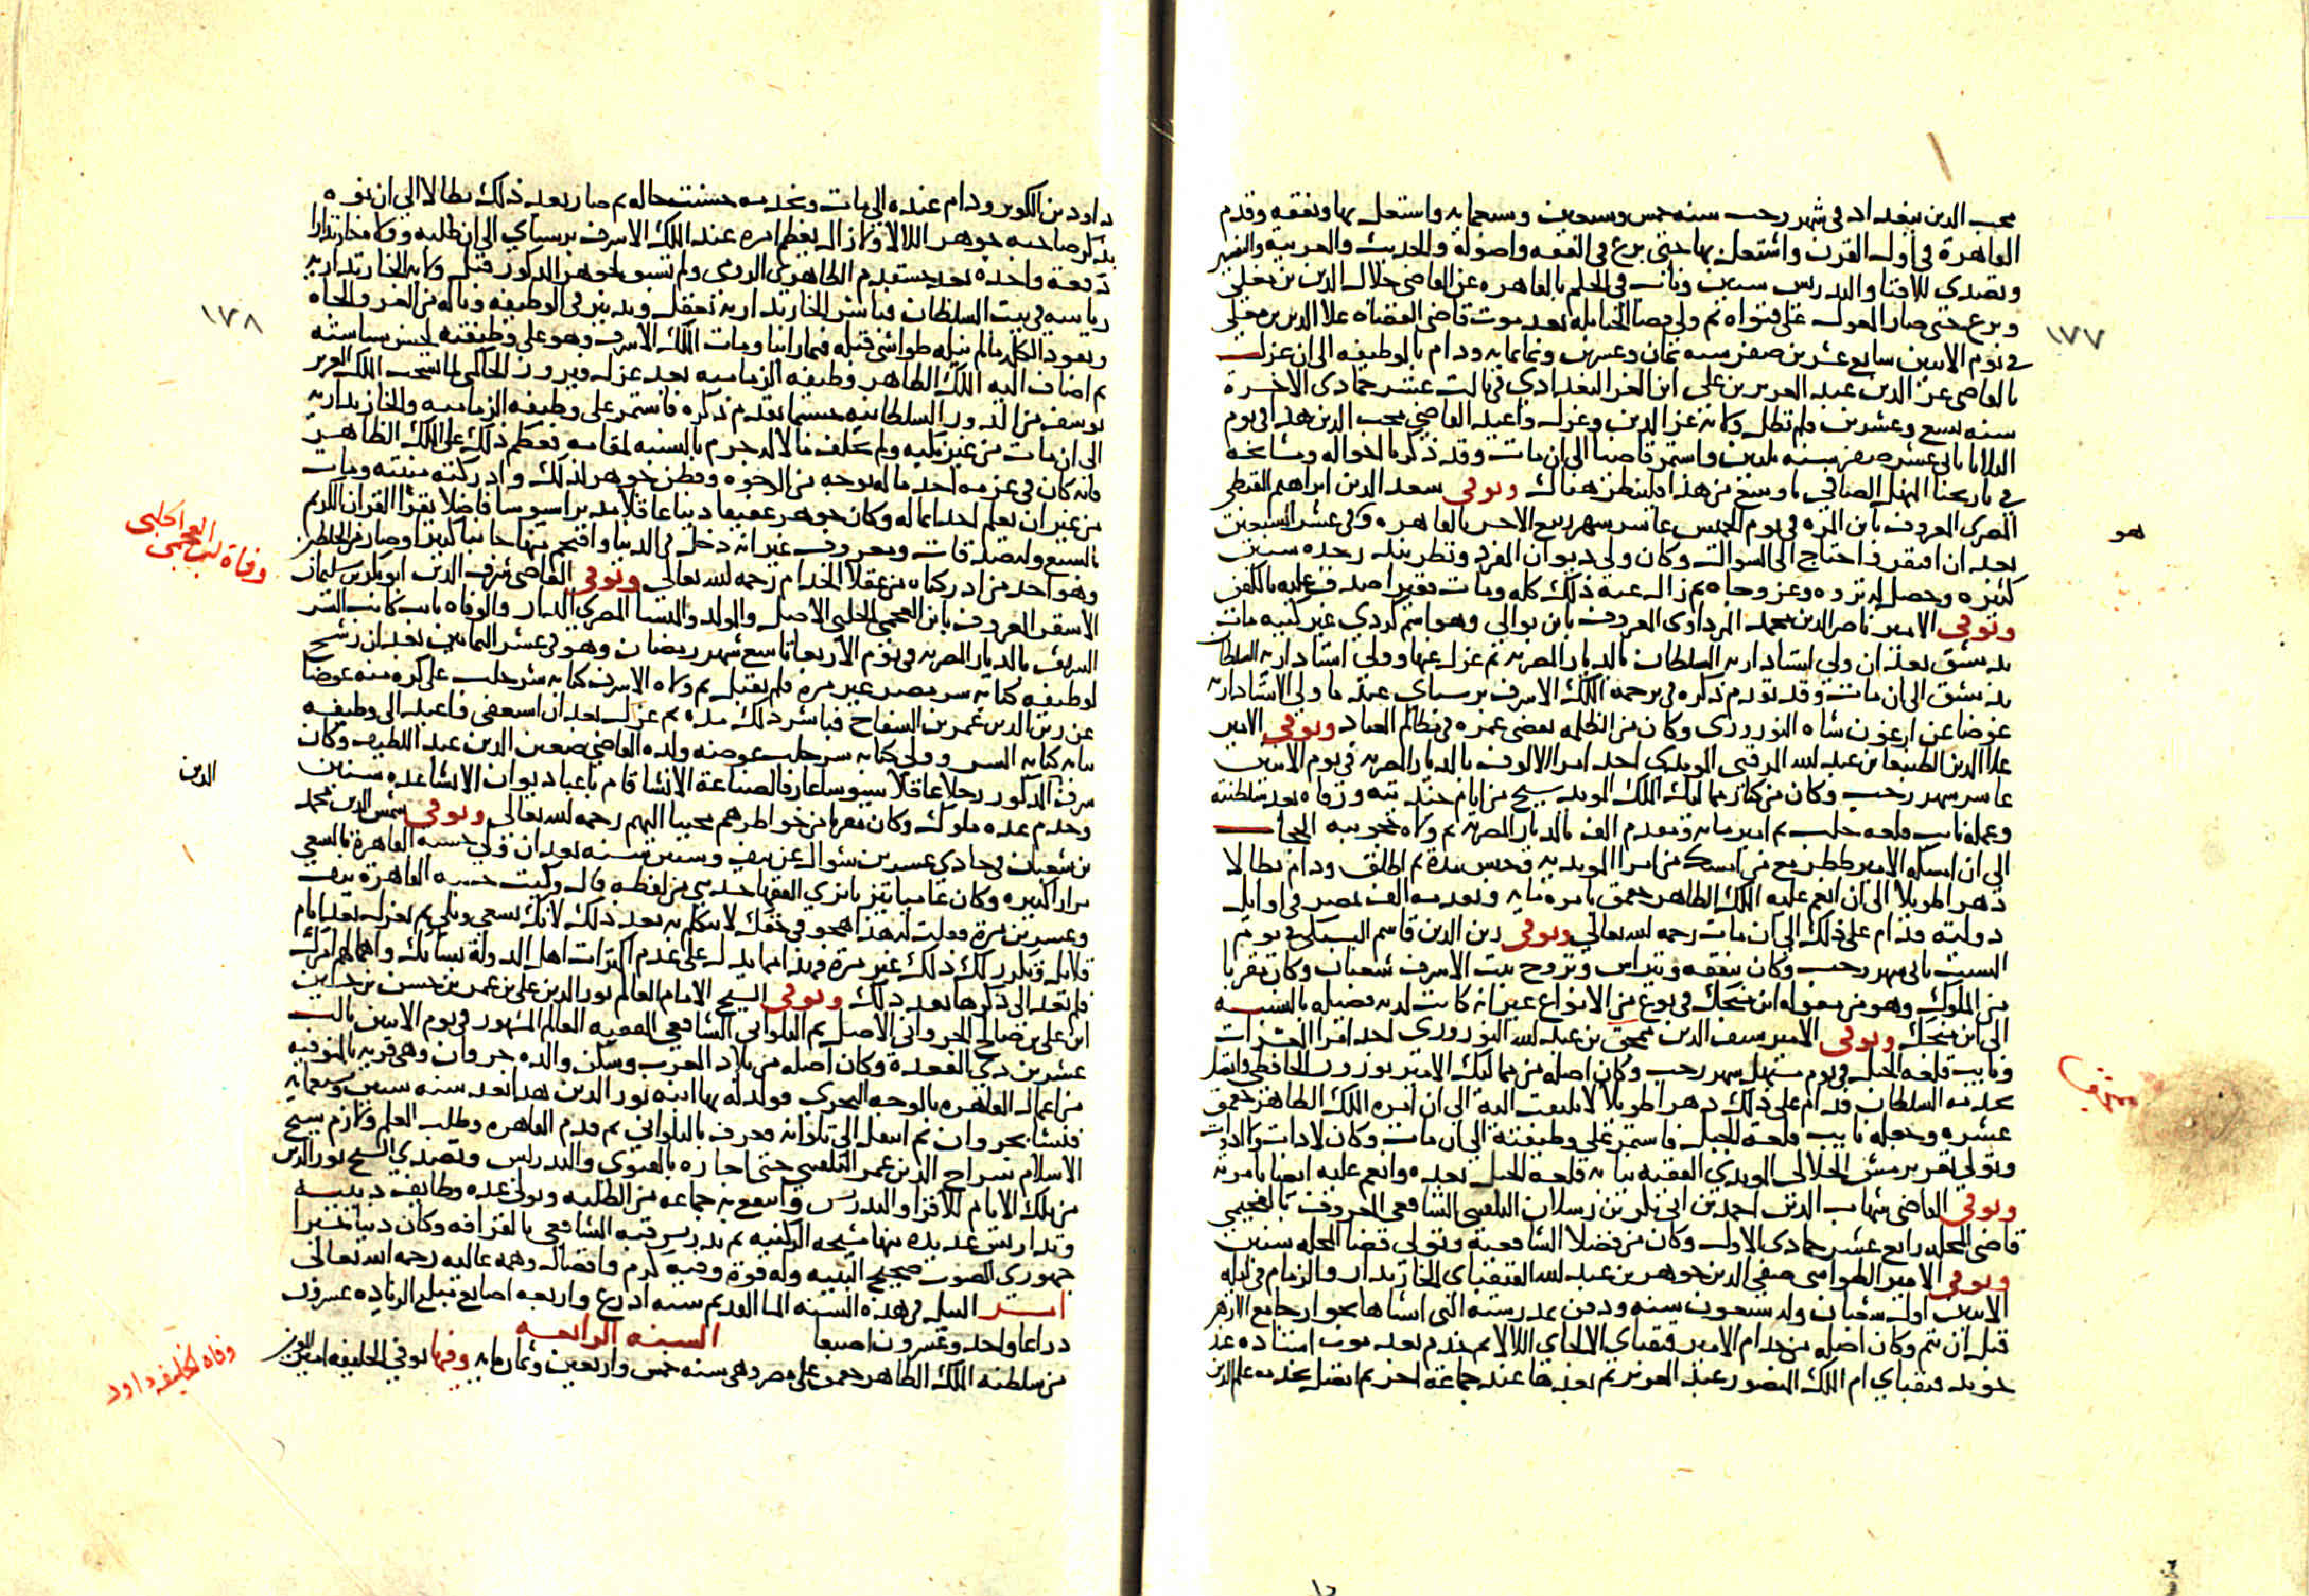 محب الدين ببغداد فى شهر رجب سنه خمس وستين وسبعمايه واشتغل بها وتفقه وقدم
القاهرة فى اول القرن واشتغل بها حتى برع فى الفقه واصوله والحديث والعربيه والتفسير
وتصدى للافتا والتدريس سنين وناب فى الحكم بالقاهره عن القاضى جلال الدين بن مغلى
وبرع حتى صار المعول على فتواه ثم ولى قضا الحنابله بعد موت قاضى القضاه علا الدين بن مغلى
١٧٧
فى يوم الاثنين سابع عشرين صفر سنه ثمان وعشرين وثمانمايه ودام بالوظيفه الى ان عزل
بالقاضى عز الدين عبد العزيز بن على ابن العز البغدادى فى ثالث عشر جمادى الاخرة
سنه تسع وعشرين فلم تطل ولايه عز الدين وعزل واعيد القاضى محب الدين هذا فى يوم
الثلاثا ثانى عشر صفر سنه ثلاثين واستمر قاضيا الى ان مات وقد ذكرنا احواله ومشايخه
فى تاريخنا المنهل الصافى باوسع من هذا فلينظر هناك وتوفى سعد الدين ابراهيم القبطى
المصرى المعروف بابن المره فى يوم الخميس عاشر شهر ربيع الاخر بالقاهره وفى عشر السبعين
هو
بعد ان افتقر واحتاج الى السوال وكان ولى ديوان المفرد ونظر بندر جده سنين
كثيره وحصل له ثروه وعز وجاه ثم زال عنه ذلك كله ومات فقيرا صدق عليه بالكفن
وتوفى الامير ناصر الدين محمد المرداوى المعروف بابن بوالى وهو اسم كردى غير كنيه مات
بدمشق بعد ان ولى استاداريه السلطان بالديار المصريه ثم عزل عنها وولى استاداريه السلطان
بدمشق الى ان مات وقد تقدم ذكره فى ترجمه الملك الاشرف برسباى عند ما ولى الاستاداريه
عوضا عن ارغون شاه النوروزى وكان من الظلمه يقضى عمره فى مظالم العباد وتوفى الامير
علا الدين الطنبغا بن عبد الله المرقبى المويدى احد امرا الالوف بالديار المصريه فى يوم الاثنين
عاشر شهر رجب وكان من كبار مماليك الملك المويد شيخ من ايام جنديته ورقاه بعد سلطنته
وعمله نايب قلعه حلب ثم امير مايه ومقدم الف بالديار المصريه ثم ولاه حجوبيه الحجاب
الى ان امسكه الامير ططر مع من امسك من امرا المويديه وحبس مدة ثم اطلق ودام بطالا
دهرا طويلا الى ان انعم عليه الملك الظاهر جقمق بامره مايه وتقدمه الف بمصر فى اوايل
دولته فدام على ذلك الى ان مات رحمه الله تعالى وتوفى زين الدين قاسم البشتكى فى يوم
السبت ثانى شهر رجب وكان يتفقه ويتراس وتزوج بنت الاشرف شعبان وكان مقربا
من الملوك وهو من مقوله ابن منجك فى نوع من الانواع غير انه كانت لديه فضيله بالنسبه
الى ابن منجك وتوفى الامير سيف الدين ممجق بن عبد الله النوروزى احد امرا العشرات
ونايب قلعه الجبل فى يوم مستهل شهر رجب وكان اصله من مماليك الامير نوروز الحافظى وانتقل
بخدمه السلطان فدام على ذلك دهرا طويلا لا يلتفت اليه الى ان امره الملك الظاهر جقمق
عشره وجعله نايب قلعه الجبل فاستمر على وظيفته الى ان مات وكان لا ذات ولا ادوات
وتولى تغرى برمش الجلالى المويدى الفقيه نيابه قلعه الجبل بعده وانعم عليه ايضا بامرته
وتوفى القاضى شهاب الدين احمد بن ابى بكر بن رسلان البلقينى الشافعى المعروف بالعجيمى
قاضى المحله رابع عشر جمادى الاولى وكان من فضلا الشافعيه وتولى قضا المحله سنين
وتوفى الامير الطواشى صفى الدين جوهر بن عبد الله القنقباى الخازندار والزمام فى ليله
الاثنين اول شعبان وله سبعون سنه ودفن بمدرسته التى انشاها بجوار جامع الازهر
قبل ان تتم وكان اصله من خدام الامير قنقباى الالجاى اللالا ثم خدم بعد موت استاده عند
خوند قنقباى ام الملك المنصور عبد العزيز ثم بعدها عند جماعة اخر ثم اتصل بخدمه علم الدين
داود بن الكويز ودام عنده الى مات وبخدمه حسنت حاله ثم صار بعد ذلك بطالا الى ان نوه
بذكره صاحبه جوهر اللالا ولا زال يعظم امره عند الملك الاشرف برسباى الى ان طلبه وولاه خازندارا
دفعه واحده بعد خشقدم الظاهرى الرومى ولم تسبق لجوهر المذكور قبل ولايه الخازنداريه
رياسه فى بيت السلطان فباشر الخازنداريه بعقل وتدبير فى الوظيفه وناله من العز والجاه
١٧٨
ونفوذ الكلمه ما لم ينله طواشى قبله فيما راينا ومات الملك الاشرف وهو على وظيفته لحسن سياسته
ثم اضاف اليه الملك الظاهر وظيفه الزماميه بعد عزل فيروز الجاركسى لما تسحب الملك العزيز
يوسف من الدور السلطانيه حسبما تقدم ذكره فاستمر على وظيفه الزماميه والخازنداريه
الى ان مات من غير نكبه ولم يخلف مالا له جرم بالنسبه لمقامه فعظم ذلك على الملك الظاهر
فانه كان فى عزمه اخذ ماله بوجه من الوجوه وفطن جوهر لذلك وادركته منيته ومات
من غير ان يعلم احد بماله وكان جوهر عفيفا دينا عاقلا مدبرا سيوسا فاضلا يقرا القران الكريم
وفاة ابن العجمى الحلبى
بالسبع وله صدقات ومعروف غير انه دخل فى الدنيا واقتحم منها جانبا كبيرا وصار من المخلطين
وهو احد من ادركناه من عقلا الخدام رحمه الله تعالى وتوفى القاضى شرف الدين ابو بكر بن سليمان
الاشقر المعروف بابن العجمى الحلبى الاصل والمولد والمنشا المصرى الدار والوفاه نايب كاتب السر
الشريف بالديار المصريه فى يوم الاربعا تاسع شهر رمضان وهو فى عشر الثمانين بعد ان رشح
لوظيفه كتابه سر مصر غير مره فلم يقبل ثم ولاه الاشرف كتابه سر حلب على كره منه عوضا
عن زين الدين عمر بن السفاح فباشر ذلك مده ثم عزل بعد ان استعفى فاعيد الى وظيفه
نيابه كتابه السر وولى كتابه سر حلب عوضه ولده القاضى معين الدين عبد اللطيف وكان
شرف المذكور رجلا عاقلا سيوسا عارفا بصناعة الانشا قام باعبا ديوان الانشا عده سنين
الدين
وخدم عده ملوك وكان مقربا من خواطرهم محببا اليهم رحمه الله تعالى وتوفى شمس الدين محمد
بن شعبان فى حادى عشرين شوال عن نيف وستين سنه بعد ان ولى حسبه القاهرة بالسعى
مرارا كثيره وكان عاميا يتزيا بزى الفقها حدثنى من لفظه قال وليت حسبه القاهرة نيف
وعشرين مرة فقلت له هذا هجو فى حقك لا تتكلم به بعد ذلك لانك تسعى وتلى ثم تعزل بعد ايام
قلايل وتكرر لك ذلك غير مرة فهذا مما يدل على عدم اكتراث اهل الدولة بشانك واهمالهم امرك
فلم يعد الى ذكرها بعد ذلك وتوفى الشيخ الامام العالم نور الدين على بن عمر بن حسن بن حسين
ابن على بن صالح الجروانى الاصل ثم التلوانى الشافعى الفقيه العالم المشهور فى يوم الاثنين ثالث
عشرين ذى القعدة وكان اصله من بلاد الغرب وسكن والده جروان وهى قريه بالمنوفيه
من اعمال القاهره بالوجه البحرى فولد له بها ابنه نور الدين هذا بعد سنه ستين وسبعمايه
فنشا بجروان ثم انتقل الى تلوانه فعرف بالتلوانى ثم قدم القاهره وطلب العلم ولازم شيخ
الاسلام سراج الدين عمر البلقينى حتى اجازه بالفتوى والتدريس وتصدى الشيخ نور الدين
من تلك الايام للاقرا والتدريس وانتفع به جماعه من الطلبه وتولى عده وظايف دينيه
وتداريس عديده منها مشيخه الركنيه ثم تدريس قبه الشافعى بالقرافه وكان دينا خيرا
جهورى الصوت صحيح البنيه وله قوة وفيه كرم وافضال وهمه عاليه رحمه الله تعالى
امر النيل فى هذه السنه الما القديم سته اذرع واربعه اصابع مبلغ الزياده عشرون
ذراعا واحد وعشرون اصبعا السنه الرابعه
من سلطنه الملك الظاهر جقمق على مصر وهى سنه خمس واربعين وثمانمايه وفيها توفى الخليفه امير
وفاه الخليفه داود